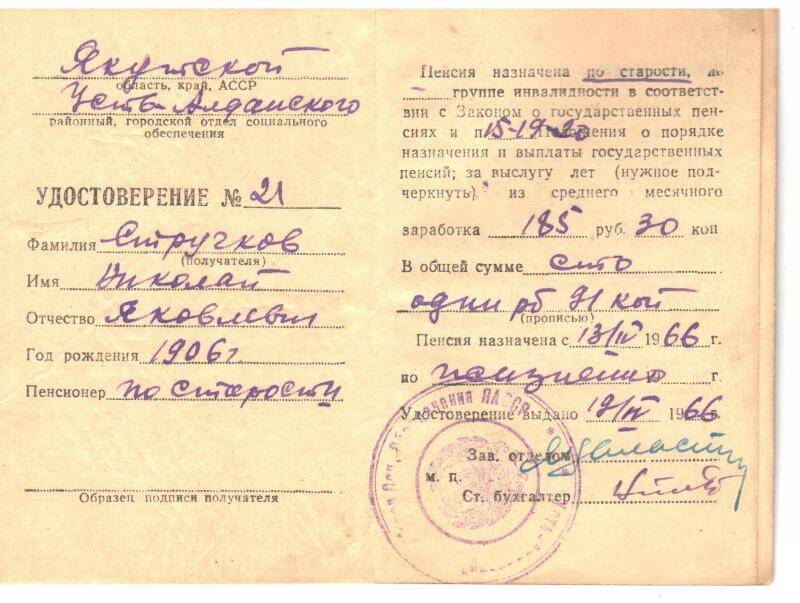 Якутской
область, край, АССР
Усть-Алданского
районный, городской отдел социального
обеспечения
УДОСТОВЕРЕНИЕ № 21
Фамилия Стручков
(получателя)
Имя Николай
Отчество Яковлевич
Год рождения 1906 г
Пенсионер по старости
Образец подписи получателя
Пенсия назначена по старости, по
группе инвалидности в соответст-
вии с Законом о государственных пен-
сиях и п 15-19-20 Положения о порядке
назначения и выплаты государственных
пенсий; за выслугу лет (нужное под-
черкнуть) из среднего месячного
заработка 185 руб. 30 коп
В общей сумме сто
один рб 91 коп
(прописью)
Пенсия назначена с 13/IV 1966 г.
по пожизненно 19 г.
Удостоверение выдано 19/IV 1966 г.
Зав. отделом
м. п.
Ст. бухгалтер